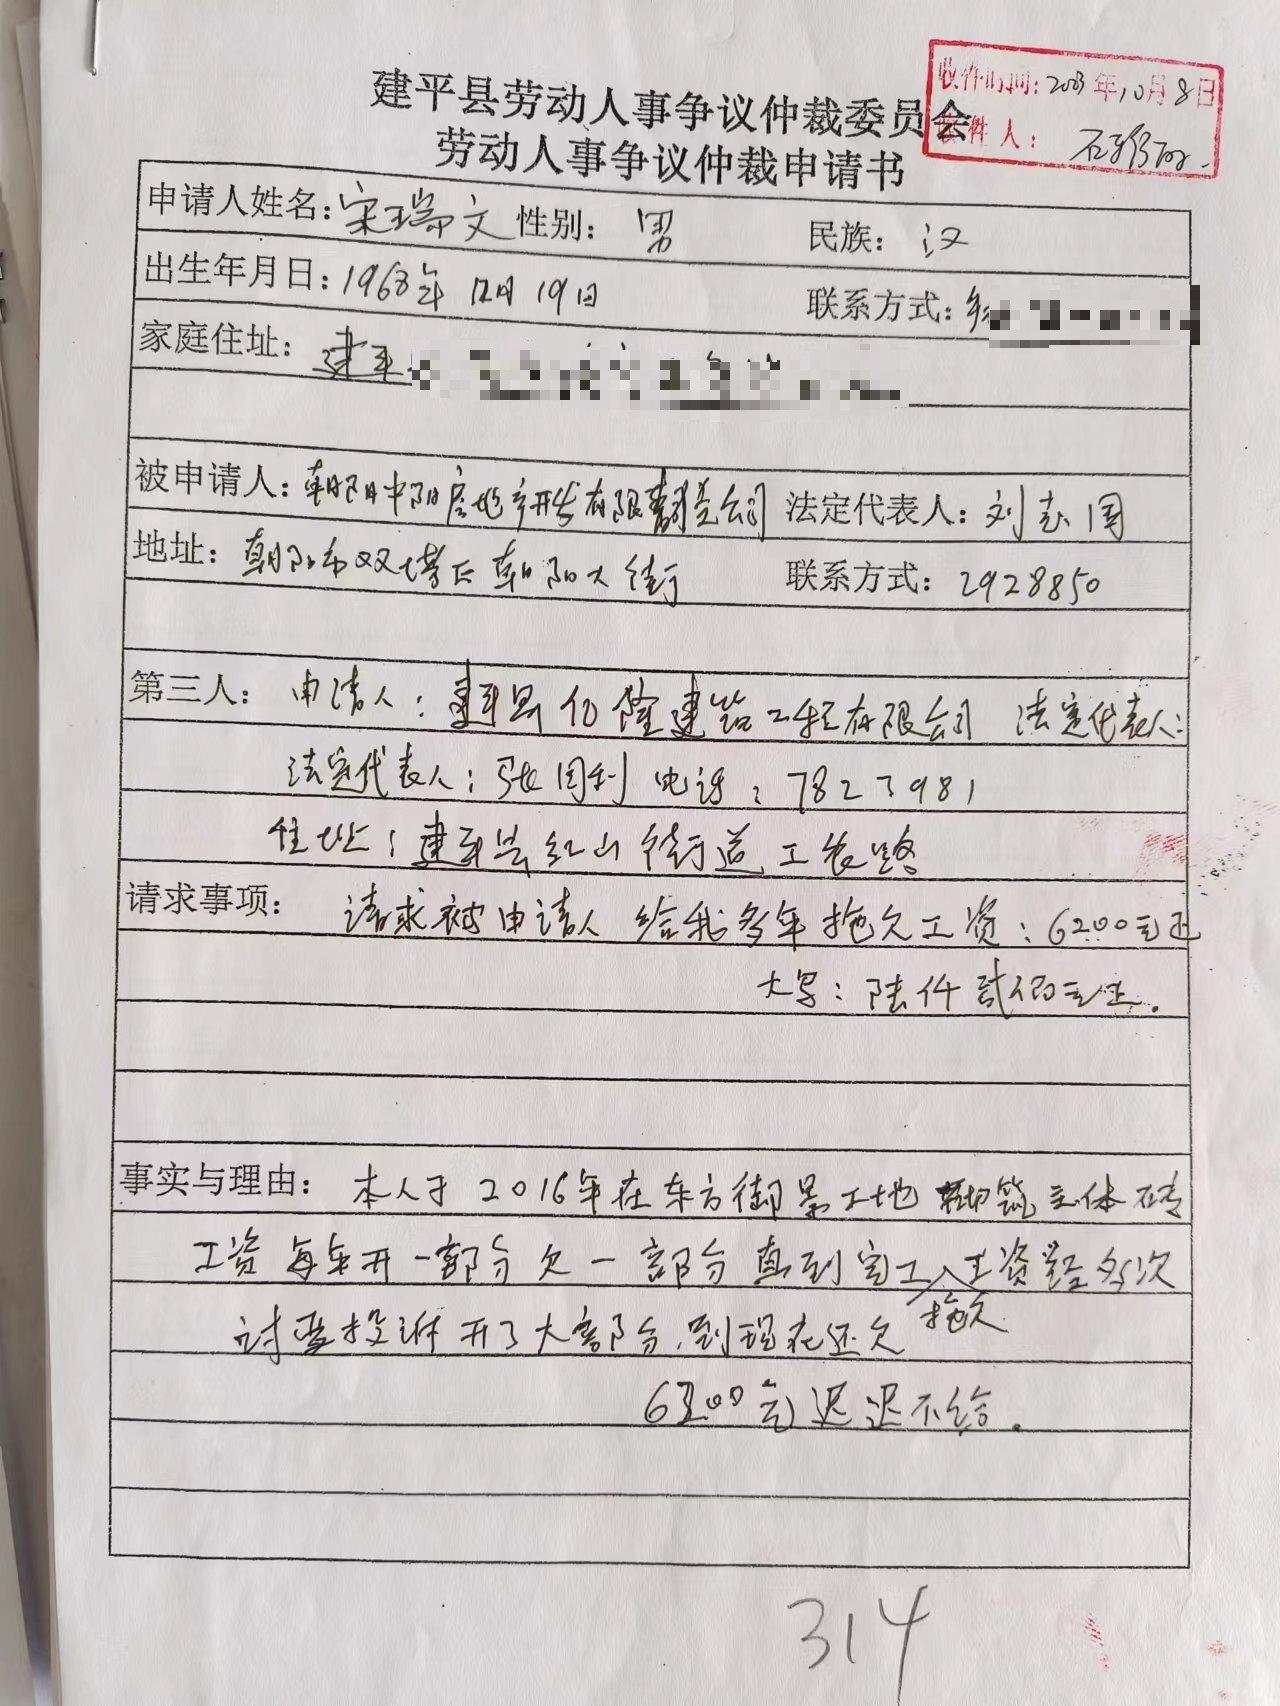 收件时间：2023年10月8日
收件人：石
建平县劳动人事争议仲裁委员会
劳动人事争议仲裁申请书
申请人姓名：宋瑞文 性别： 男 民族： 汉
出生年月日：1968年12月19日 联系方式：
家庭住址： 建平
被申请人：朝阳中阳房地产开发有限责任公司 法定代表人：刘志国
地址： 朝阳市双塔区朝阳大街 联系方式： 2928850
第三人： 申请人：建平县亿隆建筑工程有限公司 法定代表人：
法定代表人：张国利 电话：7823981
住址：建平县红山街道工农路
请求事项： 请求被申请人给我多年拖欠工资：6200元正
大写：陆仟贰佰元正。
事实与理由： 本人于2016年在东方御景工地砌筑主体砖
工资每年开一部分欠一部分直到完工拖欠工资经多次
讨要投诉开了大部分，到现在还欠
6200元迟迟不给。
314